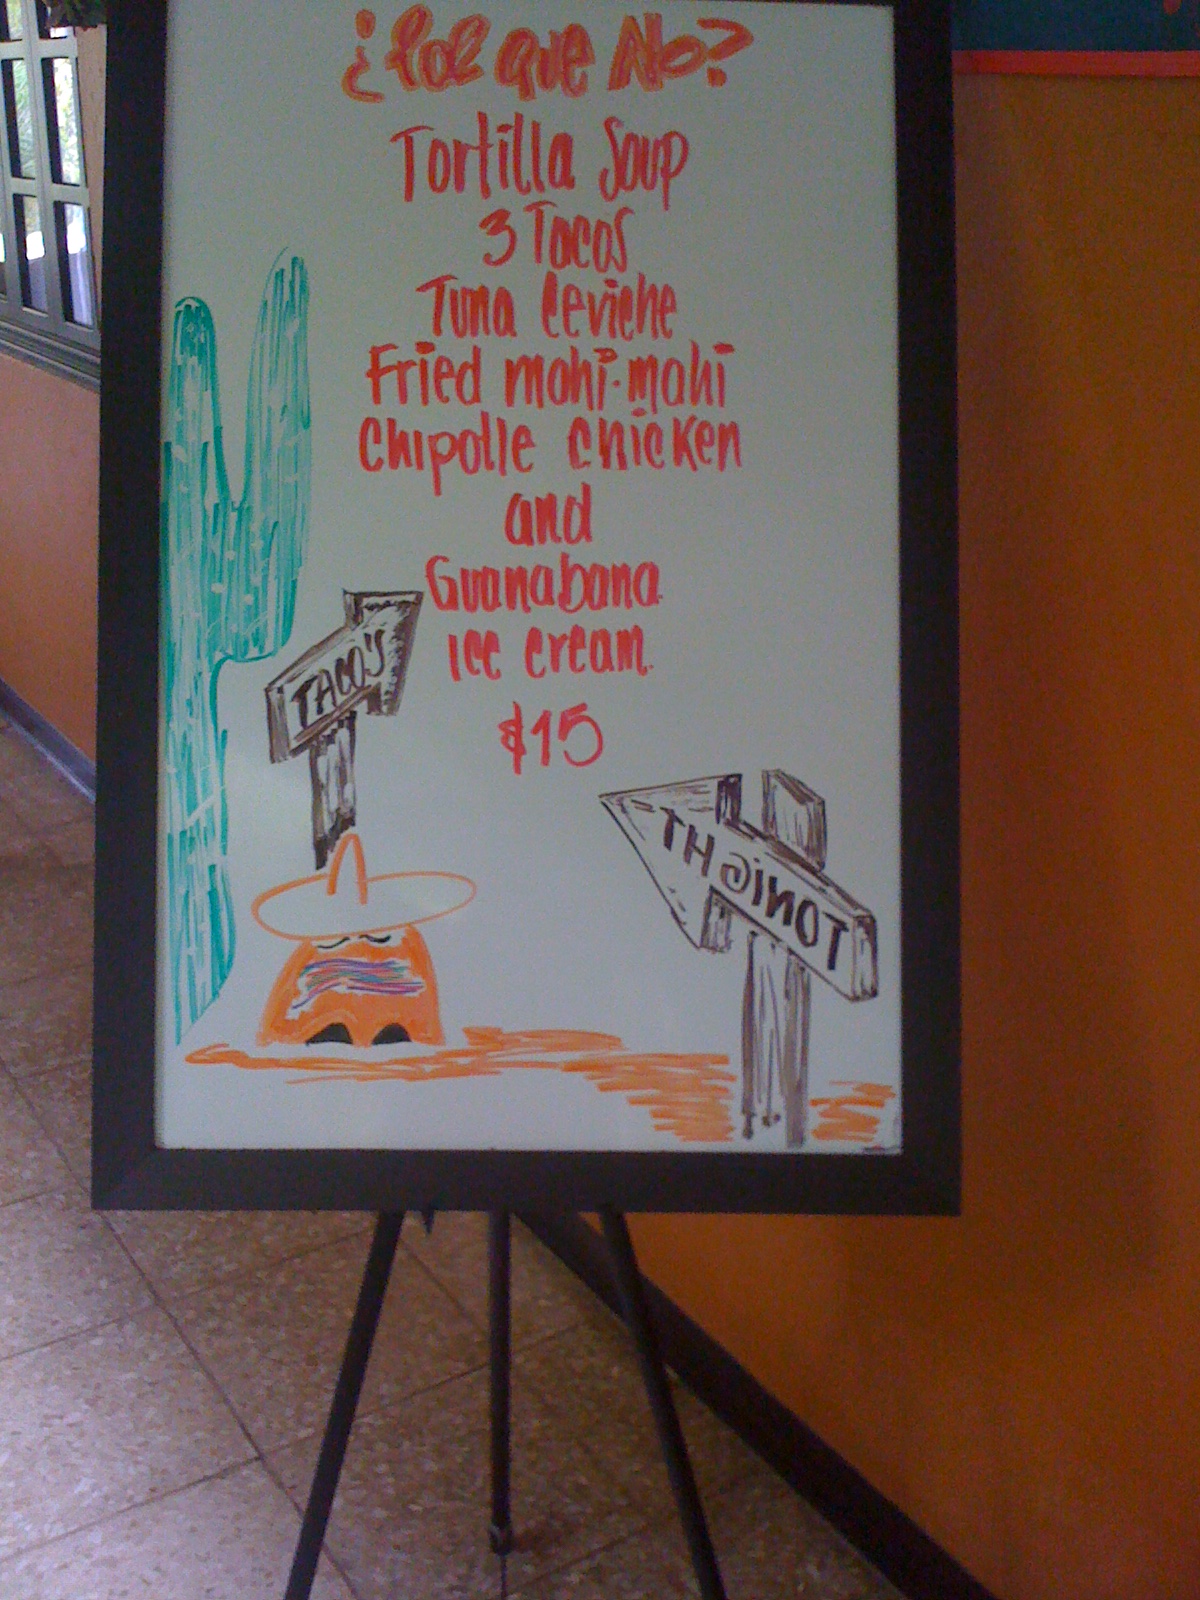 ¿Por que No?
Tortilla Soup
3 Tacos
Tuna Ceviche
Fried mahi-mahi
Chipotle Chicken
and
Guanabana
Ice cream.
$15
TACO'S
TONIGHT